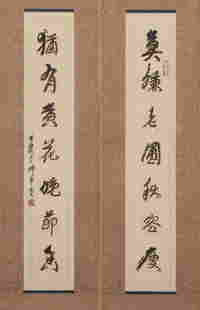 莫嫌老圃秋容瘦
猶有黃花晚節香